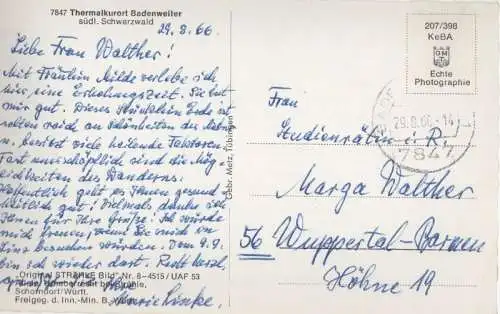 7847 Thermalkurort Badenweiler
südl. Schwarzwald
29.8.66.
Liebe Frau Walther!
Mit Fräulein Milde verlebe ich
hier eine Erholungszeit. Sie tut
mir gut. Dieses Stücklein Erde ist
selten reich an Schönheiten der Natur
u. besitzt viele heilende Faktoren.
Fast unerschöpflich sind die Mög-
lichkeiten des Wanderns.
Hoffentlich geht es Ihnen gesund-
heitlich gut! Vielmals danke ich
Ihnen für Ihre Grüße! Ich würde
mich freuen, wenn Sie mich in
besuchen würden. Am 9.9.
bin ich wieder dort. Recht herzl.
Ihre
Marie Linke.
"Original STRÄHLE Bild" Nr. 8-4515/UAF 53
Schorndorf/Württ.
Freigeg. d. Inn.-Min. B
Gebr. Metz, Tübingen
207/398
KeBA
GM
Echte
Photographie
29.8.66-14
7847
Frau
Studienrätin i. R.
Marga Walther
56 Wuppertal-Barmen
Höhne 19